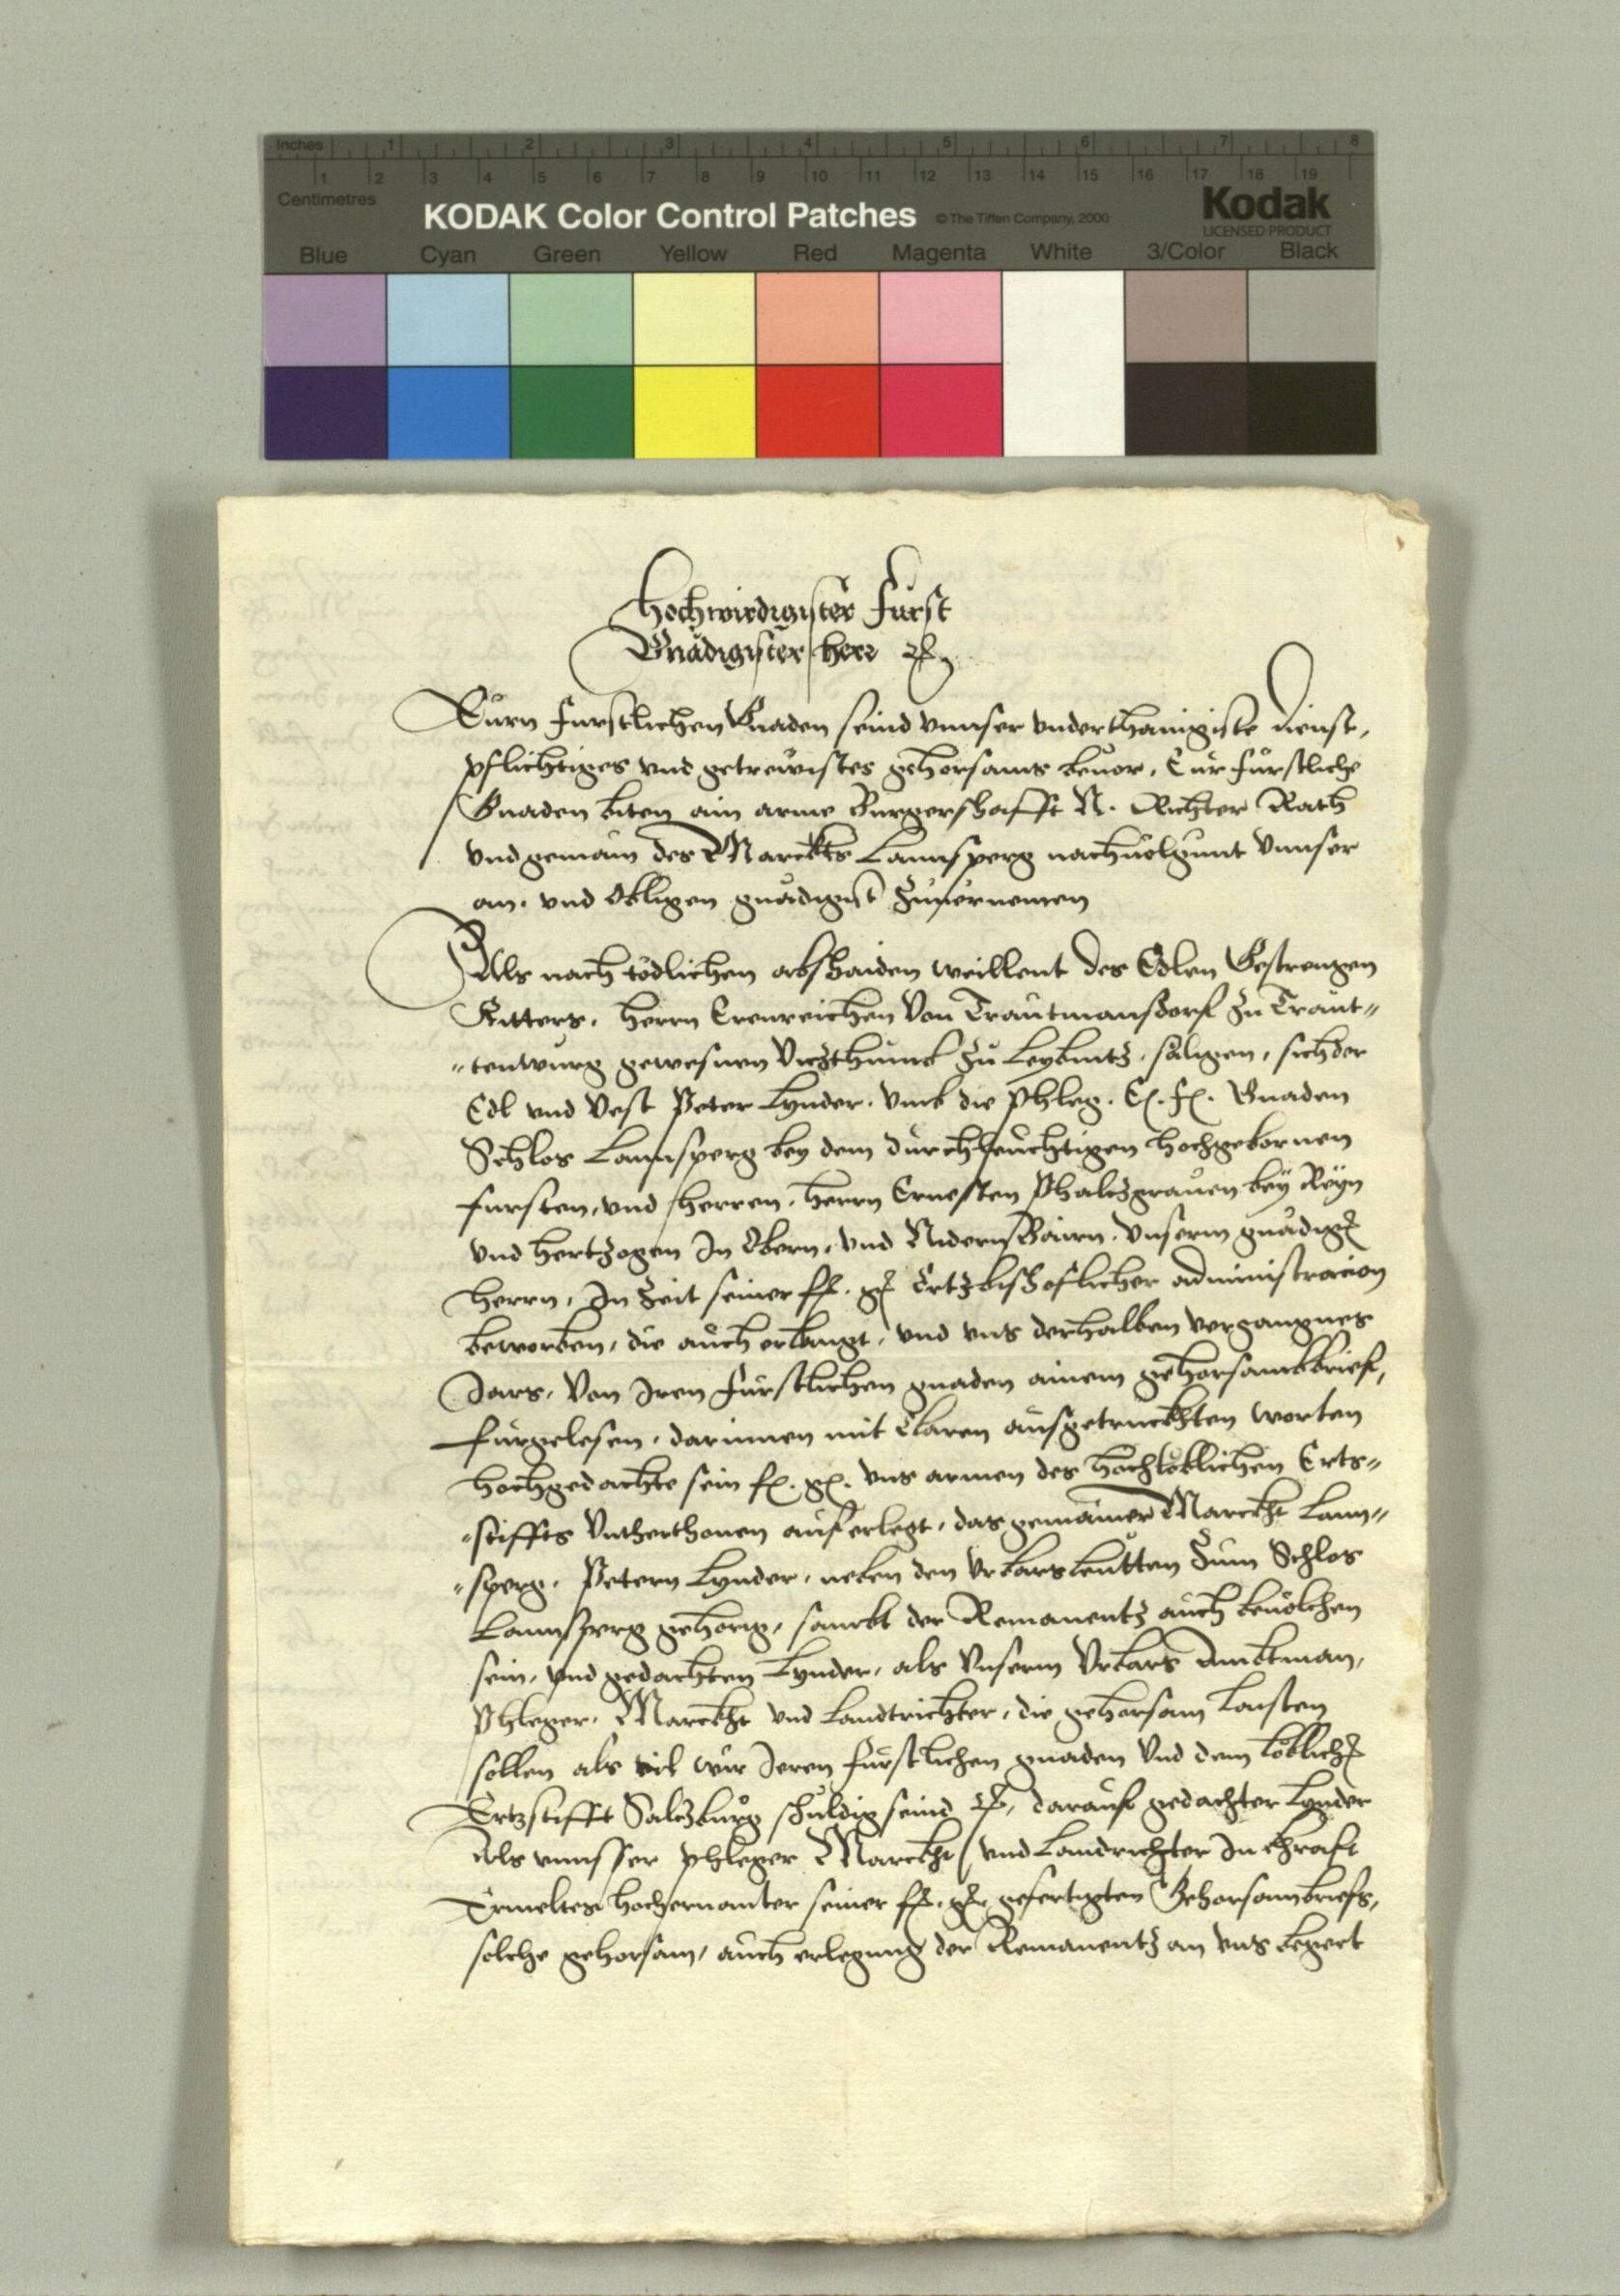 Inches 1 2 3 4 5 6 7 8
1 2 3 4 5 6 7 8 9 10 11 12 13 14 15 16 17 18 19
Centimetres
KODAK Color Control Patches © The Tiffen Company, 2000 Kodak
LICENSED PRODUCT
Blue Cyan Green Yellow Red Magenta White 3/Color Black
Hochwirdigister Fürst
Gnädigister herr ꝛc.
Eurn Furstlichen Gnaden seind vnnser vnderthanigiste dienst,
pflichtiges vnd getrewistes gehorsams beuor, Eur fürstliche
Gnaden biten ain arme Burgerschafft N. Richter Rath
vnd gemain des Marckts Lannsperg nachuolgunt vnnser
an. vnd Obligen gnädigist zuuernemen
Als nach tödlichen abschaiden weillent des Edlen Gestrengen
Ritters, herrn Erenreichen Von Trautmansdorf zu Traut-
-tenburg gewesnen Vitzthumb zu Leybnitz, säligen, sich der
Edl vnd Vest Peter Lynder, vmb die Phleg, E. F. Gnaden
Schlos Lannsperg bey dem durchleuchtigen hochgebornen
fursten, vnd herren, herrn Ernesten Phaltzgrauen bey Reyn
vnd hertzogen In Obern, vnd Nidern Bairn, Vnserm gnädigen
herrn, In Zeit seiner fl. gl. Ertzbischoflicher administracion
beworben, die auch erlangt, vnd vns derhalben vergangnes
Jars, Von Iren Fürstlichen gnaden ainem gehorsambbrief,
fürgelesen, darinnen mit Claren ausgetruckhten worten
hochgedachte sein F. g. vns armen des hochlöblichen Erts-
-stiffts Vntherthonen auferlegt, das gemainer Marckht Lann-
-sperg, Petern Lynder, neben den Vrbarsleutten zum Schlos
Lannsperg gehorig, sambt der Remanentz auch beuolchen
sein, vnd gedachten Lynder, als Vnserm Vrbars Ambtman,
Phleger, Marckht vnd Landtrichter, die gehorsam Laisten
sollen als vil wir Jeren fürstlichen gnaden Vnd dem löblichen
Ertzstifft Saltzburg schuldig seind ꝛc, darauf gedachter Lynder
Als vnnsser phleger Marckht vnd Landrichter In Chraft
Ermeltes hochernanter seiner fl. gl. gefertigten Gehorsambriefs,
solche gehorsam, auch erlegung der Remanentz an vns begert